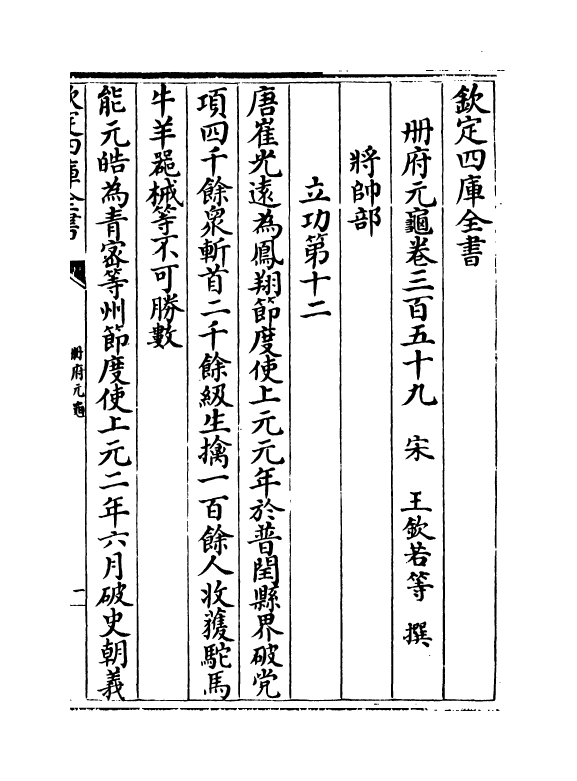 欽定四庫全書
冊府元龜卷三百五十九　宋　王欽若等　撰
將帥部
立功第十二
唐崔光遠為鳳翔節度使上元元年於普閏縣界破党
項四千餘衆斬首二千餘級生擒一百餘人收獲駝馬
牛羊器械等不可勝數
能元皓為青密等州節度使上元二年六月破史朝義
欽定四庫全書
冊府元龜
一